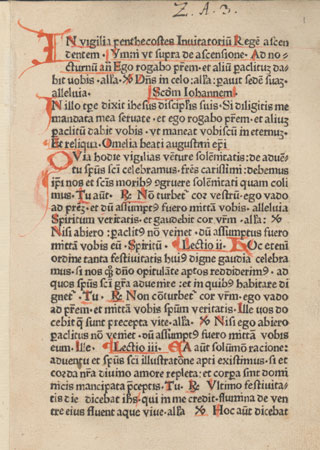 Z. A. 3.
IN vigilia penthecostes Inuitatoriũ Regẽ ascen
dentem · Ymni vt supra de ascensione · Ad no-
cturnũ añ Ego rogabo p̃rem · et aliũ paclitũ da-
bit vobis · alla · ℟ Dñs in celo : alla : pauit sedẽ suã ·
alleluia · Scd̃m Iohannem
IN illo tp̃e dixit ihesus discipl̃is suis · Si diligitis me
mandata mea seruate · et ego rogabo p̃rem · et aliuz
paclitũ dabit vobis · vt maneat vobiscũ in eternuz ·
Et reliqua · Omelia beati augustini ep̃i
QUia hodie vigilias vẽture solẽnitatis : de aduẽ-
tu sp̃us sc̃i celebramus · fr̃es carissimi : debemus
ip̃i nos et sc̃is morib⁹ ↄgruere solẽnitati quam coli
mus · Tu aũt · ℟ Nõ turbet᷑ cor vestrũ · ego vado
ad p̃rez · et dũ assumpt⁹ fuero mittã vobis · alleluia
Spiritum veritatis · et gaudebit cor vr̃m · alla · ℣
Nisi abiero : paclit⁹ nõ veniet · dũ assumptus fuero
mittã vobis eũ · Spiritũ · Lectio ii · Hoc etenĩ
ordine tanta festiuitatis hui⁹ digne gaudia celebra
mus · si nos
ad
quos sp̃us sc̃i gr̃a aduenire : et in quib⁹ habitare di
gnet᷑ · Tu · ℟ Non cõturbet᷑ cor vr̃m · ego vado
ad p̃rem · et mittã vobis sp̃um veritatis · Ille vos do
cebit q̃ sunt precepta vite · alla · ℣ Nisi ego abiero
paclitus nõ veniet · dũ assumpt⁹ fuero mittã vobis
eum · Ille · Lectio iii · Ea aũt solũmõ racione :
aduentu et sp̃us sc̃i illustratõne apti existimus · si et
corda nr̃a diuino amore repleta : et corpa sint domi
nicis mancipata p̃ceptis · Tu · ℟ Ultimo festiuita-
tis die dicebat ihs · qui in me credit · flumina de ven
tre eius fluent aque viue · alla · ℣ Hoc aũt dicebat